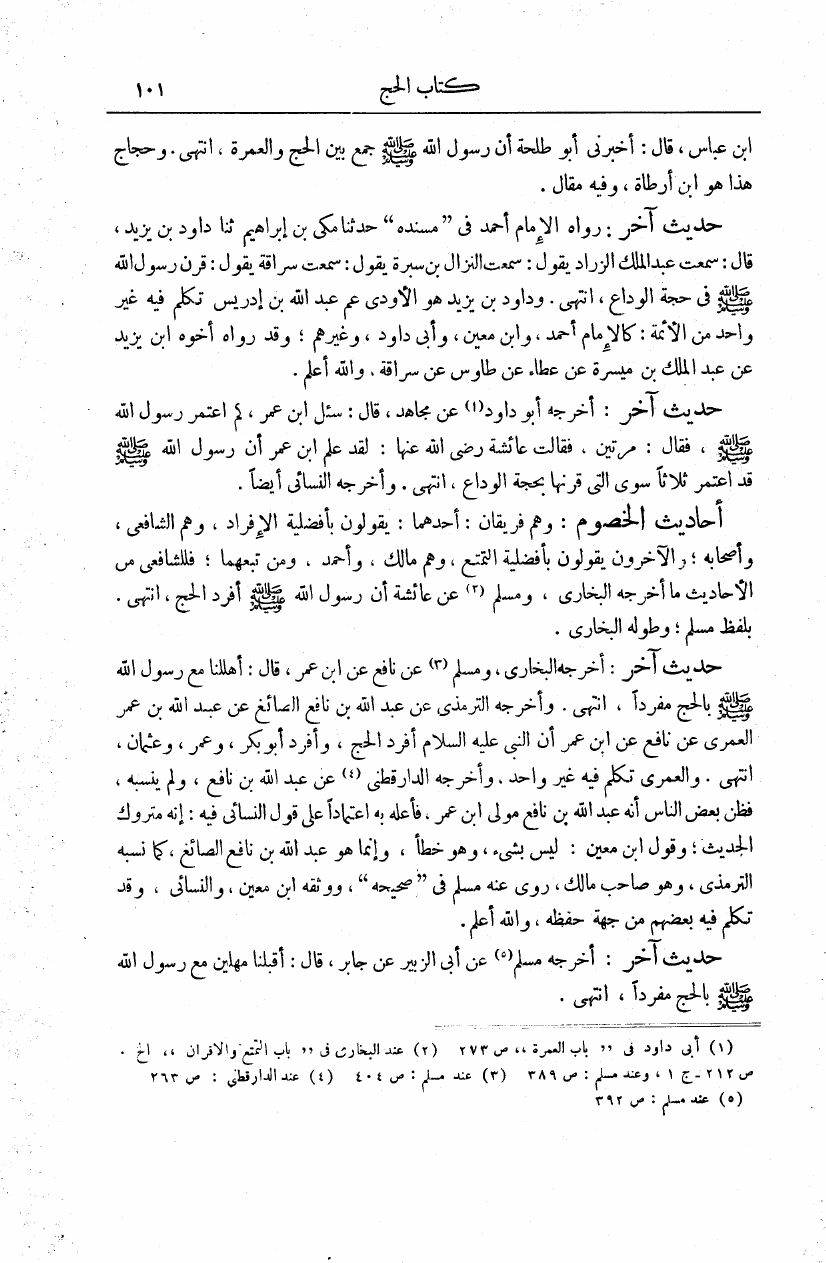 كتاب الحج ١٠١
ابن عباس ، قال : أخبرنى أبو طلحة أن رسول الله ﷺ جمع بين الحج والعمرة ، انتهى . وحجاج
هذا هو ابن أرطاة ، وفيه مقال .
حديث آخر : رواه الإمام أحمد فى "مسنده" حدثنا مكى بن إبراهيم ثنا داود بن يزيد ،
قال : سمعت عبد الملك الزراد يقول : سمعت النزال بن سبرة يقول : سمعت سراقة يقول : قرن رسول الله
ﷺ فى حجة الوداع ، انتهى . وداود بن يزيد هو الأودى عم عبد الله بن إدريس تكلم فيه غير
واحد من الأئمة : كالإمام أحمد ، وابن معين ، وأبى داود ، وغيرهم ؛ وقد رواه أخوه ابن يزيد
عن عبد الملك بن ميسرة عن عطاء عن طاوس عن سراقة ، والله أعلم .
حديث آخر : أخرجه أبو داود (١) عن مجاهد ، قال : سئل ابن عمر ، كم اعتمر رسول الله
ﷺ ، فقال : مرتين ، فقالت عائشة رضى الله عنها : لقد علم ابن عمر أن رسول الله ﷺ
قد اعتمر ثلاثاً سوى التى قرنها بحجة الوداع ، انتهى . وأخرجه النسائى أيضاً .
أحاديث الخصوم : وهم فريقان : أحدهما : يقولون بأفضلية الإفراد ، وهم الشافعى ،
وأصحابه ؛ والآخرون يقولون بأفضلية التمتع ، وهم مالك ، وأحمد ، ومن تبعهما ؛ فللشافعى من
الأحاديث ما أخرجه البخارى ، ومسلم (٢) عن عائشة أن رسول الله ﷺ أفرد الحج ، انتهى .
بلفظ مسلم ؛ وطوله البخارى .
حديث آخر : أخرجه البخارى ، ومسلم (٣) عن نافع عن ابن عمر ، قال : أهللنا مع رسول الله
ﷺ بالحج مفرداً ، انتهى . وأخرجه الترمذى عن عبد الله بن نافع الصائغ عن عبد الله بن عمر
العمرى عن نافع عن ابن عمر أن النبى عليه السلام أفرد الحج ، وأفرد أبو بكر ، وعمر ، وعثمان ،
انتهى . والعمرى تكلم فيه غير واحد ، وأخرجه الدارقطنى (٤) عن عبد الله بن نافع ، ولم ينسبه ،
فظن بعض الناس أنه عبد الله بن نافع مولى ابن عمر ، فأعله به اعتماداً على قول النسائى فيه : إنه متروك
الحديث ؛ وقول ابن معين : ليس بشىء ، وهو خطأ ، وإنما هو عبد الله بن نافع الصائغ ، كما نسبه
الترمذى ، وهو صاحب مالك ، روى عنه مسلم فى "صحيحه" ، ووثقه ابن معين ، والنسائى ، وقد
تكلم فيه بعضهم من جهة حفظه ، والله أعلم .
حديث آخر : أخرجه مسلم (٥) عن أبى الزبير عن جابر ، قال : أقبلنا مهلين مع رسول الله
ﷺ بالحج مفرداً ، انتهى .
(١) أبى داود فى ,, باب العمرة ،، ص ٢٧٣ (٢) عند البخارى فى ,, باب التمتع والاقران ،، الخ .
ص ٢١٢ - ج ١ ، وعند مسلم : ص ٣٨٩ (٣) عند مسلم : ص ٤٠٤ (٤) عند الدارقطنى : ص ٢٦٣
(٥) عند مسلم : ص ٣٩٢